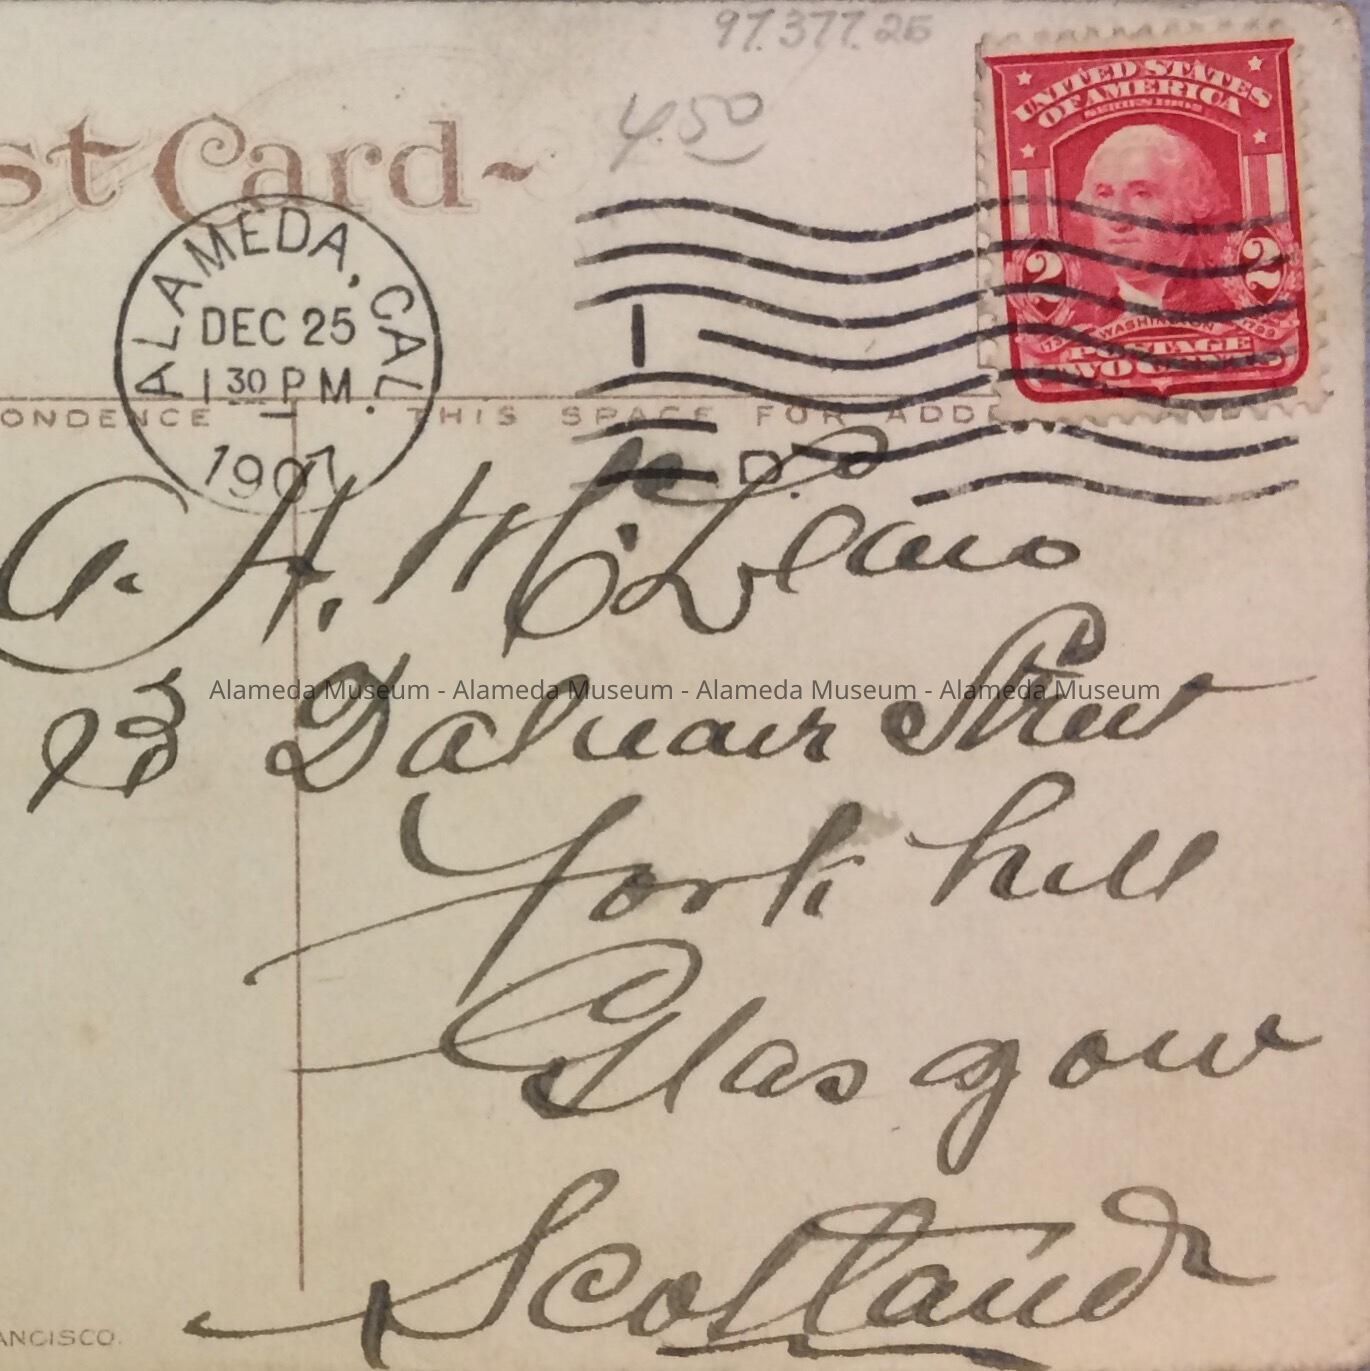 97.377.25
4.50
st Card
UNITED STATES
OF AMERICA
SERIES 1902
2 2
WASHINGTON
1799
POSTAGE
TWO CENTS
ALAMEDA, CAL.
DEC 25
1 30 P M.
1907
1
D.
ONDENCE THIS SPACE FOR ADD
A. H. McLean
23 Street
Alameda Museum - Alameda Museum - Alameda Museum - Alameda Museum
York hill
Glasgow
Scotland
ANCISCO.